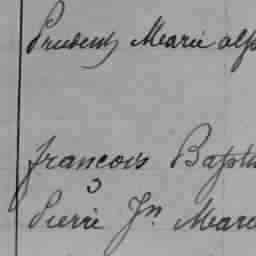 Prudent Marie alp
francois Bapti
Pierre Jn Marie